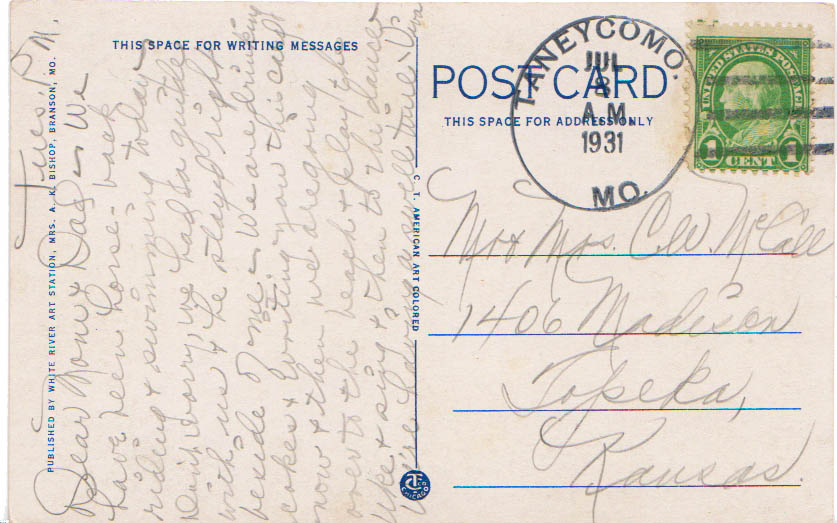 THIS SPACE FOR WRITING MESSAGES
POST CARD
THIS SPACE FOR ADDRESS ONLY
TANEYCOMO.
JUL
8
A.M.
1931
MO.
UNITED STATES POSTAGE
1 CENT 1
Mr & Mrs. C.W. McCall
1406 Madison
Topeka,
Kansas.
Tues. P.M.
Dear Mom & Dad - We
have been horse-back
riding & swimming today -
Don't worry, we had a guide
with us & he stayed right
beside of me - We are drinking
cokes & writing you this card
now & then we are going
over to the beach & play the
uke & sing & then to the dance
We're having a swell time - Viva
PUBLISHED BY WHITE RIVER ART STATION, MRS. A. K. BISHOP, BRANSON, MO.
C. T. AMERICAN ART COLORED
CHICAGO